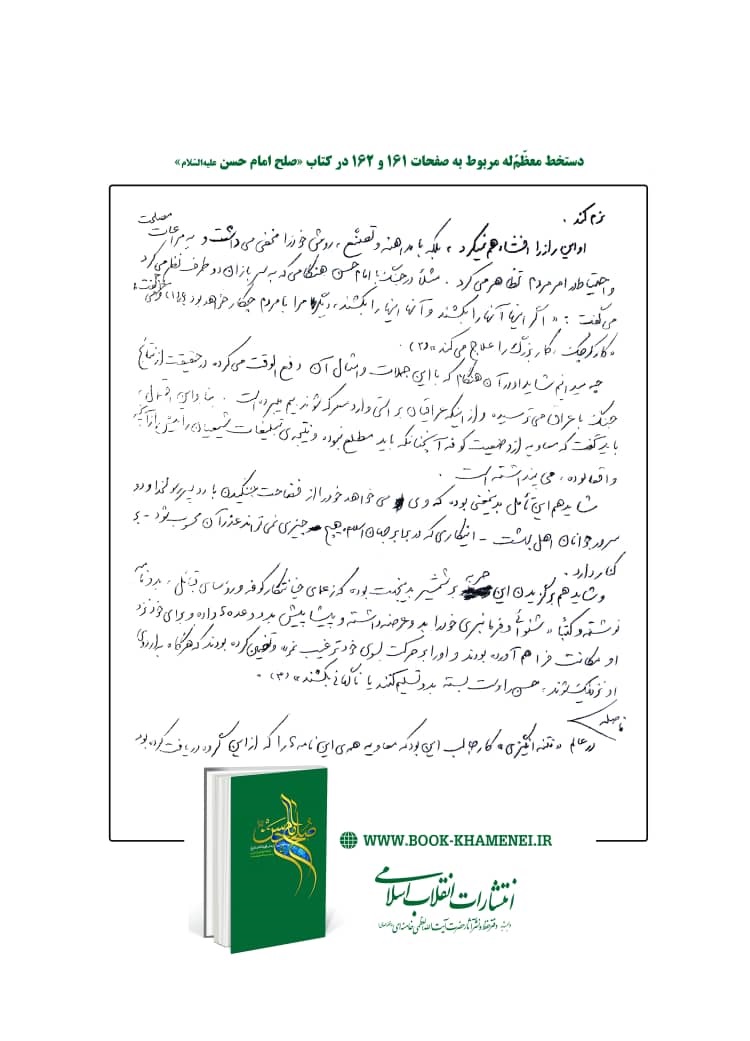 دستخط معظّمٌ‌له مربوط به صفحات ۱۶۱ و ۱۶۲ در کتاب «صلح امام حسن علیه‌السّلام»
نرم کند .
مصلحت
او این راز را افشاء هم نمیکرد ، بلکه با مداهنه و تصنّع ، روش خود را مخفی می داشت و به مراعات
و احتیاط در امر مردم تظاهر می کرد . مثلاً در جنگ با امام حسن هنگامی که به سربازان دو طرف نظر می کرد
می گفت : « اگر اینها آنها را بکشند و آنها اینها را بکشند ، دیگر مرا با مردم چکار خواهد بود
« کار کوچک ، کار بزرگ را علاج می کند » (۲) .
چه میدانیم شاید او در آن هنگام که با این جملات و امثال آن دفع الوقت می کرده در حقیقت از نتایج
جنگ با عراق می ترسیده و از اینکه عراقیان براستی وارد معرکه شوند بیم میبرده است . بنابراین
باید گفت که معاویه از وضعیت کوفه آنچنانکه باید مطلع نبوده و نتیجه‌ی تبلیغات شیعیان را بیش از آنچه
واقعاً بوده ، می پنداشته است .
شاید هم این تأمل بدینمعنی بوده که وی می خواهد خود را از فضاحت جنگیدن با دو پسر رسولخدا و دو
سرور جوانان اهل بهشت - اینکاری که در برابر جهان اسلام هیچ چیزی نمی تواند عذر آن محسوب شود - بر
کنار دارد .
و شاید هم برگزیدن این حربه بر شمشیر بدینجهت بوده که زعمای خیانتکار کوفه و رؤسای قبائل ، بدو نامه
نوشته و کتباً « شنوائی و فرمانبری خود را بدو عرضه داشته و پیشاپیش بدو وعده ها داده و برای خود نزد
او مکانت فراهم آورده بودند و او را بر حرکت بسوی خود ترغیب نموده و تضمین کرده بودند که هرگاه به اردوی
او نزدیک شوند ، حسن را دست بسته بدو تسلیم کنند یا ناگهانی بکشند » (۳) .
فاصله
در عالم « فتنه انگیزی » کار جالب این بود که معاویه همه ی این نامه ها را که از این گروه دریافت کرده بود
صلح امام حسن
WWW.BOOK-KHAMENEI.IR
انتشارات انقلاب اسلامی
وابسته به دفتر حفظ و نشر آثار حضرت آیت‌الله العظمی خامنه‌ای